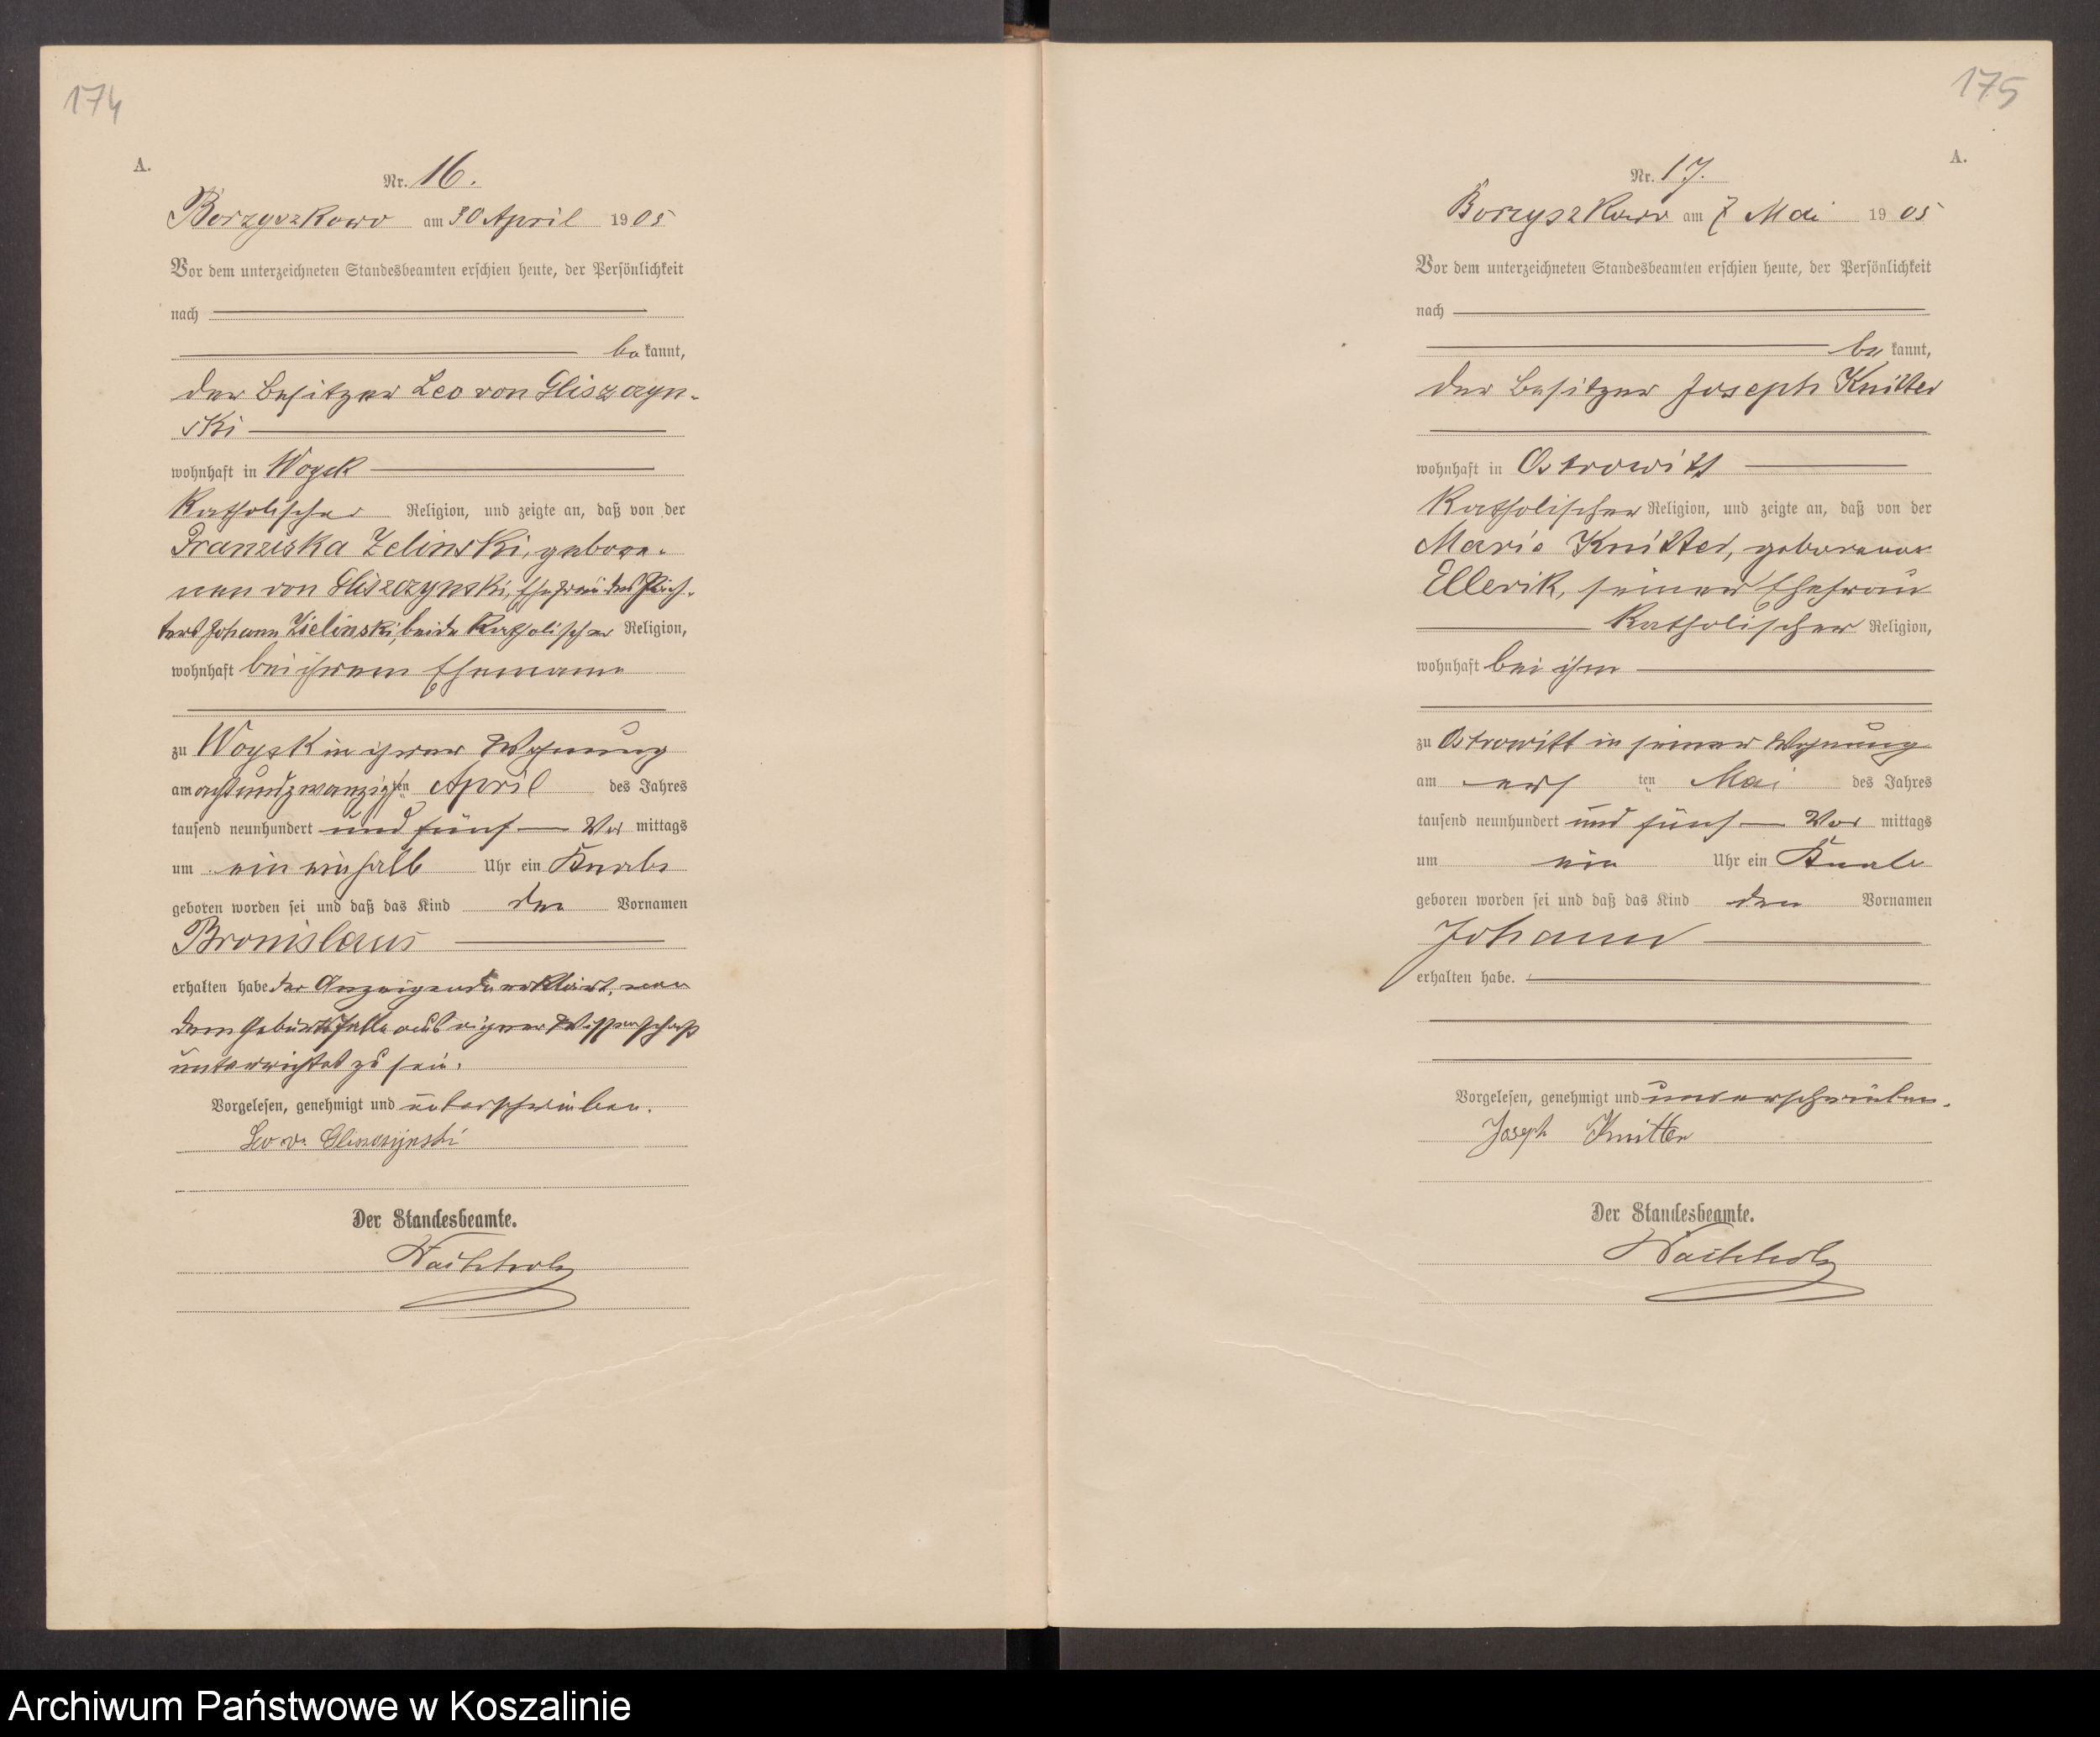 174
A.
Nr. 16.
Borzyszkowo am 30 April 1905
Vor dem unterzeichneten Standesbeamten erschien heute, der Persönlichkeit
nach
bekannt,
der Besitzer Leo von Gliszczyn-
ski
wohnhaft in Woysk
katholischer Religion, und zeigte an, daß von der
Franziska Zelinski, gebore-
nen von Gliszczynski, Ehefrau des Päch-
ters Johann Zielinski, beide katholischer Religion,
wohnhaft bei ihrem Ehemann
zu Woysk in ihrer Wohnung
am achtundzwanzigsten April des Jahres
tausend neunhundert und fünf Vormittags
um ein einhalb Uhr ein Knabe
geboren worden sei und daß das Kind den Vornamen
Bronislaus
erhalten habe der Anzeigende erklärt, von
dem Geburtsfalle aus eigner Wissenschaft
unterrichtet zu sein.
Vorgelesen, genehmigt und unterschrieben.
Leo v. Gliszczynski
Der Standesbeamte.
175
A.
Nr. 17.
Borzyszkowo am 7 Mai 1905
Vor dem unterzeichneten Standesbeamten erschien heute, der Persönlichkeit
nach
bekannt,
der Besitzer Joseph Knitter
wohnhaft in Ostrowitt
katholischer Religion, und zeigte an, daß von der
Marie Knitter, geborenen
Ellerik, seiner Ehefrau
katholischer Religion,
wohnhaft bei ihm
zu Ostrowitt in seiner Wohnung
am ersten Mai des Jahres
tausend neunhundert und fünf Vormittags
um ein Uhr ein Knabe
geboren worden sei und daß das Kind den Vornamen
Johann
erhalten habe.
Vorgelesen, genehmigt und unterschrieben.
Joseph Knitter
Der Standesbeamte.
Archiwum Państwowe w Koszalinie